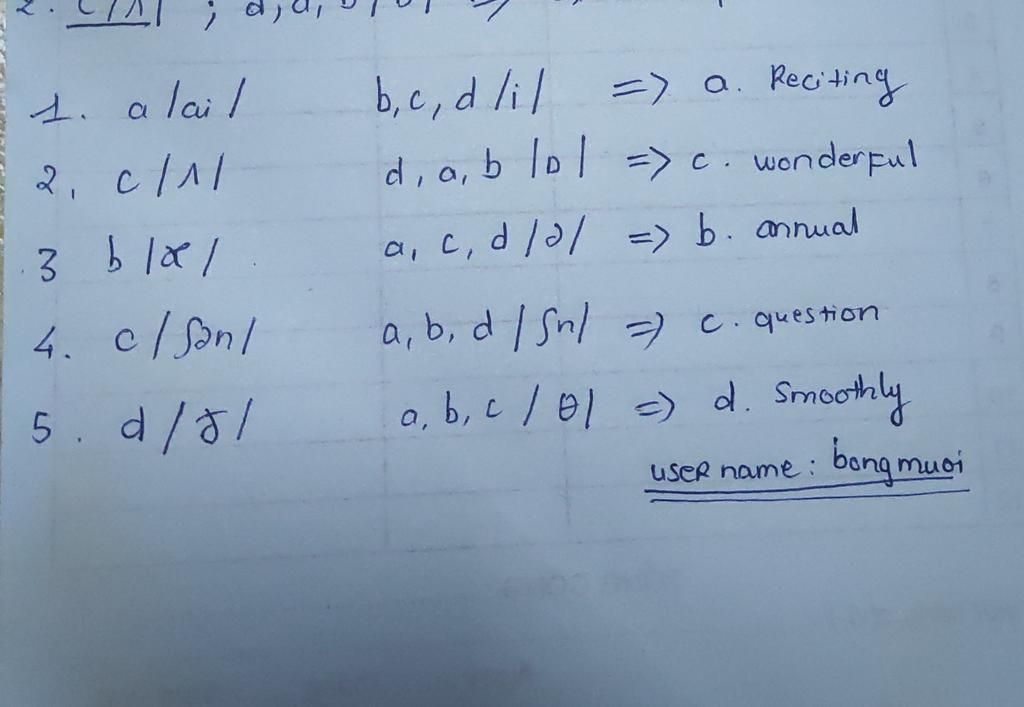 2. c /ʌ/ ; d, a, b /ɒ/ =>
1. a /ai/ b, c, d /i/ => a. Reciting
2, c /ʌ/ d, a, b /ɒ/ => c. wonderful
3 b /æ/ a, c, d /ə/ => b. annual
4. c /ʃən/ a, b, d /ʃn/ => c. question
5. d /ð/ a, b, c /θ/ => d. Smoothly
useR name: bongmuoi